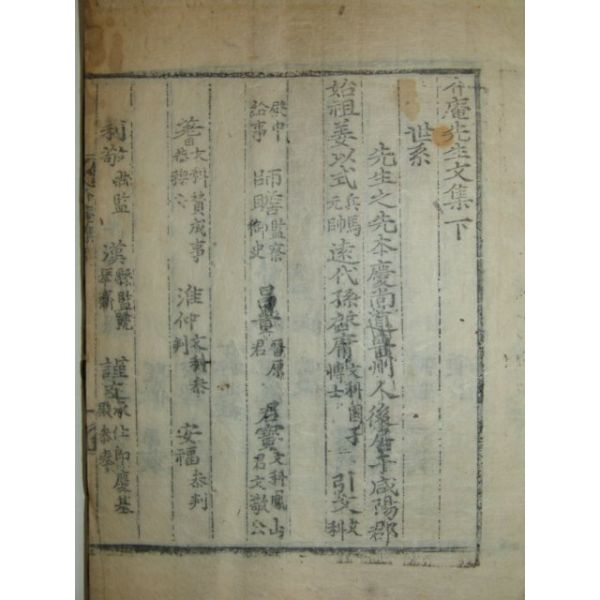 介庵先生文集下
世系
先生之先本慶尚道晋州人後居于咸陽郡
始祖姜以式兵馬元帥遠代孫啓庸文科國子博士引文文科
殿中給事師瞻監察御史昌貴晋原君君寶文科鳳山君文敬公
蓍文科贊成事恭穆公淮仲文科參判安福參判
利敬縣監漢縣監號琴齋謹文承仕郎慶基殿參奉